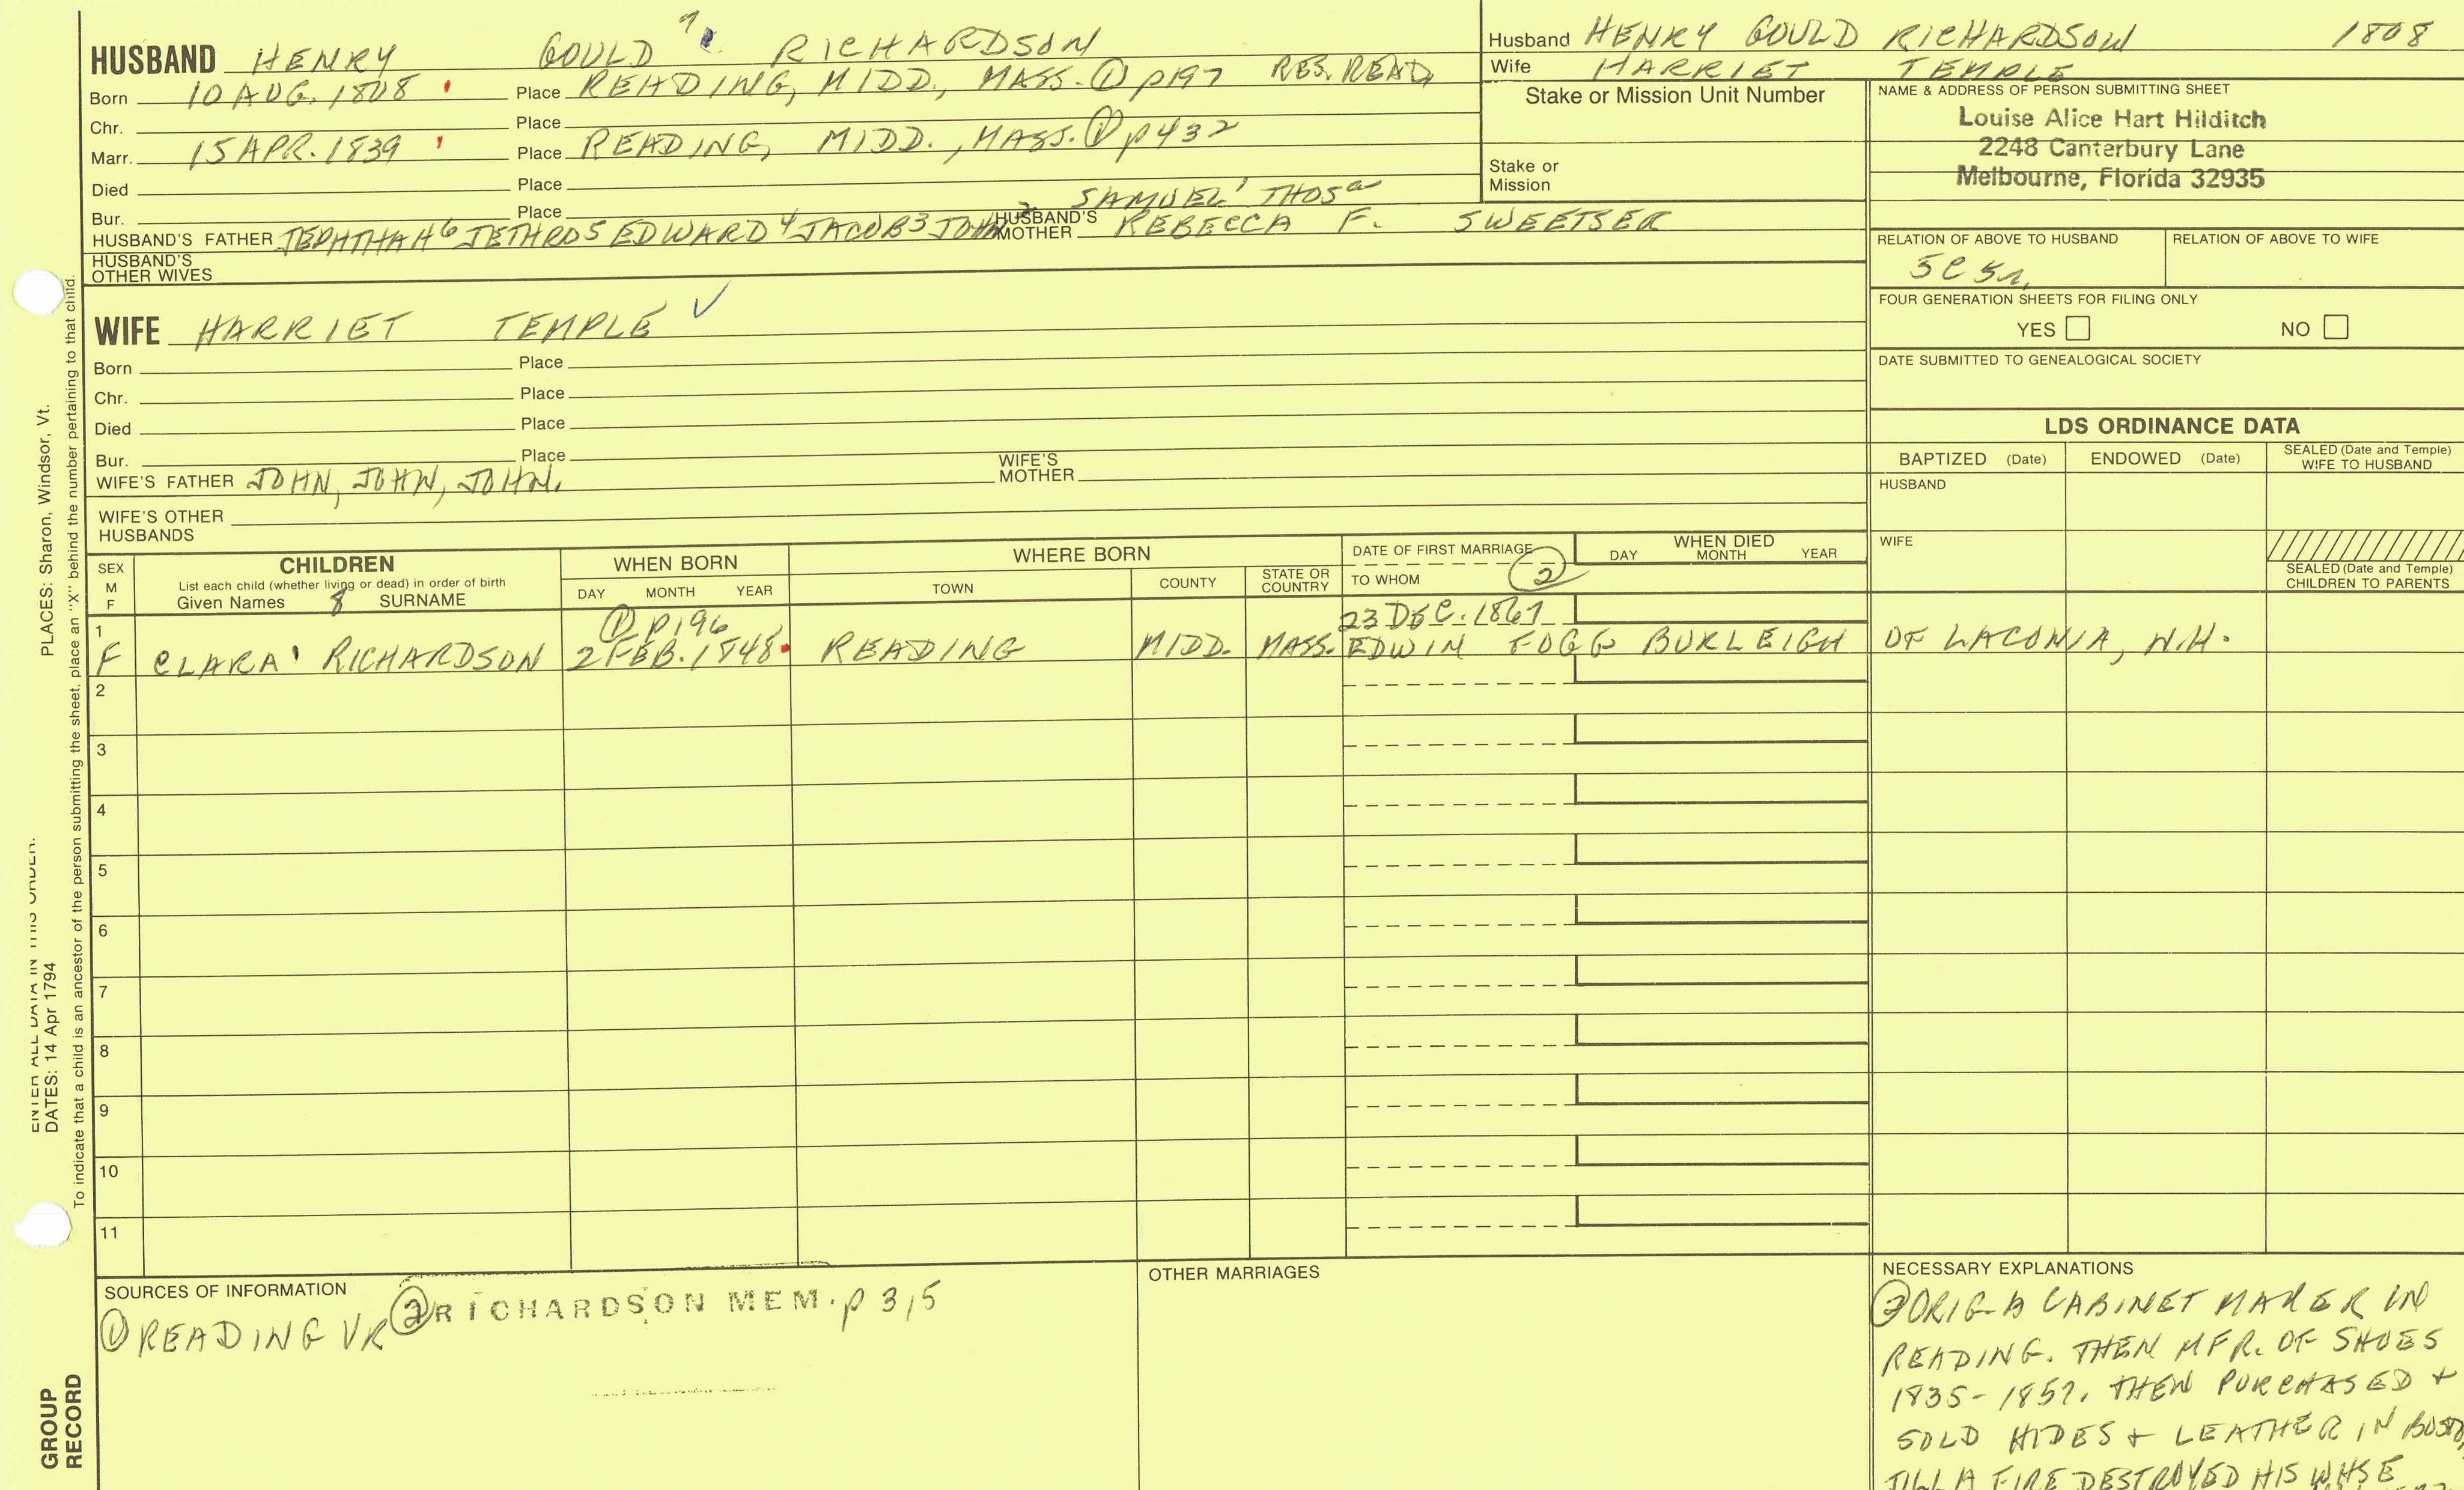 HUSBAND HENRY GOULD 7 RICHARDSON
Born 10 AUG. 1808 Place READING, MIDD., MASS. ① p197 RES. READ
Chr. Place
Marr. 15 APR. 1839 Place READING, MIDD., MASS. ① p432
Died Place
Bur. Place SAMUEL¹ THOS
HUSBAND'S FATHER JEPHTHAH⁶ JETHRO⁵ EDWARD⁴ JACOB³ JOHN HUSBAND'S MOTHER REBECCA F. SWEETSER
HUSBAND'S OTHER WIVES
WIFE HARRIET TEMPLE ✓
Born Place
Chr. Place
Died Place
Bur. Place
WIFE'S FATHER JOHN, JOHN, JOHN. WIFE'S MOTHER
WIFE'S OTHER HUSBANDS
Husband HENRY GOULD RICHARDSON 1808
Wife HARRIET TEMPLE
Stake or Mission Unit Number
Stake or Mission
NAME & ADDRESS OF PERSON SUBMITTING SHEET
Louise Alice Hart Hilditch
2248 Canterbury Lane
Melbourne, Florida 32935
RELATION OF ABOVE TO HUSBAND RELATION OF ABOVE TO WIFE
5C 5r
FOUR GENERATION SHEETS FOR FILING ONLY
YES NO
DATE SUBMITTED TO GENEALOGICAL SOCIETY
LDS ORDINANCE DATA
BAPTIZED (Date) ENDOWED (Date) SEALED (Date and Temple) WIFE TO HUSBAND
HUSBAND
WIFE
SEALED (Date and Temple) CHILDREN TO PARENTS
SEX M F
CHILDREN
List each child (whether living or dead) in order of birth
Given Names 8 SURNAME
WHEN BORN
DAY MONTH YEAR
WHERE BORN
TOWN COUNTY STATE OR COUNTRY
DATE OF FIRST MARRIAGE
TO WHOM ②
WHEN DIED
DAY MONTH YEAR
1 ① p196 23 DEC. 1867
F CLARA RICHARDSON 2 FEB. 1848 READING MIDD. MASS. EDWIN FOGG BURLEIGH OF LACONIA, N.H.
2
3
4
5
6
7
8
9
10
11
SOURCES OF INFORMATION
① READING VR ② RICHARDSON MEM. p 315
OTHER MARRIAGES
NECESSARY EXPLANATIONS
② ORIG. A CABINET MAKER IN
READING. THEN MFR. OF SHOES
1835-1857. THEN PURCHASED +
SOLD HIDES + LEATHER IN BOSTON
TILL A FIRE DESTROYED HIS WHSE
PLACES: Sharon, Windsor, Vt.
ENTER ALL DATA IN THIS ORDER:
DATES: 14 Apr 1794
To indicate that a child is an ancestor of the person submitting the sheet, place an "X" behind the number pertaining to that child.
GROUP RECORD